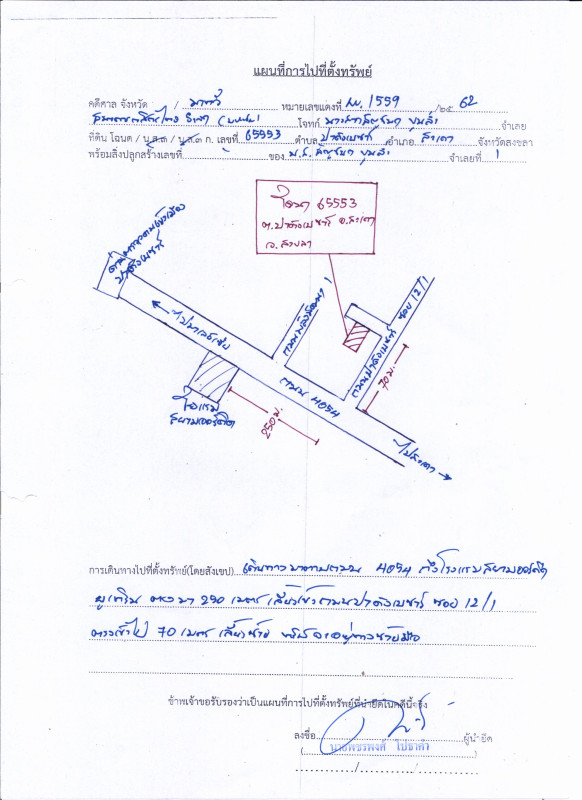 แผนที่การไปที่ตั้งทรัพย์
คดีศาล จังหวัด / นาทวี หมายเลขแดงที่ ผบ. 1559 /๒๕ 62
โจทก์ จำเลย
ที่ดิน โฉนด / น.ส.๓ / น.ส.๓ ก. เลขที่ 65553 ตำบล ปาดังเบซาร์ อำเภอ สะเดา จังหวัดสงขลา
พร้อมสิ่งปลูกสร้างเลขที่ - ของ น.ส. จำเลยที่ 1
โฉนด 65553
ต.ปาดังเบซาร์ อ.สะเดา
จ.สงขลา
ปาดังเบซาร์
ไปมาเลเซีย
ถนน 4054
ถนนปาดังเบซาร์ ซอย 12/1
70 ม.
250 ม.
โรงแรม
ไปสะเดา
การเดินทางไปที่ตั้งทรัพย์(โดยสังเขป) เดินทางมาตามถนน 4054 ถึงโรงแรมสยามออคิด
250 เมตร เลี้ยวเข้าถนนปาดังเบซาร์ ซอย 12/1
ตรงเข้าไป 70 เมตร เลี้ยวซ้าย ทรัพย์จะอยู่ทางซ้ายมือ
ข้าพเจ้าขอรับรองว่าเป็นแผนที่การไปที่ตั้งทรัพย์ที่นำยึดในคดีนี้จริง
ลงชื่อ ผู้นำยึด
( นายพชรพงศ์ )
/ /